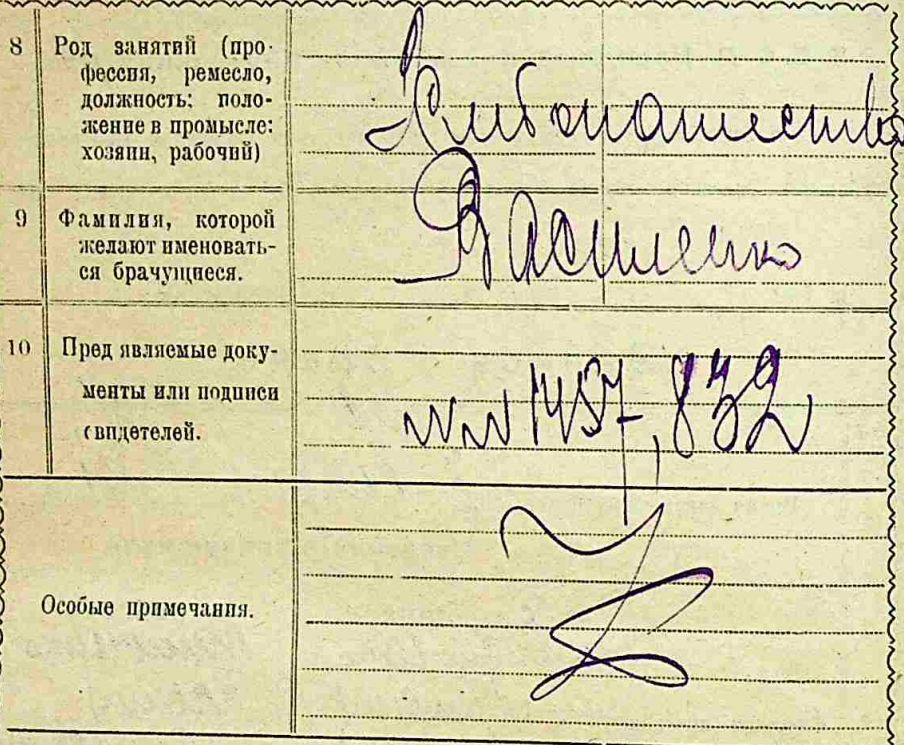 8 Род занятий (про-
фессия, ремесло,
должность: поло-
жение в промысле:
хозяин, рабочий)
Хлебопашество
9 Фамилия, которой
желают именовать-
ся брачущиеся.
Василенко
10 Пред являемые доку-
менты или подписи
свидетелей.
№№ 1457, 832
Особые примечания.